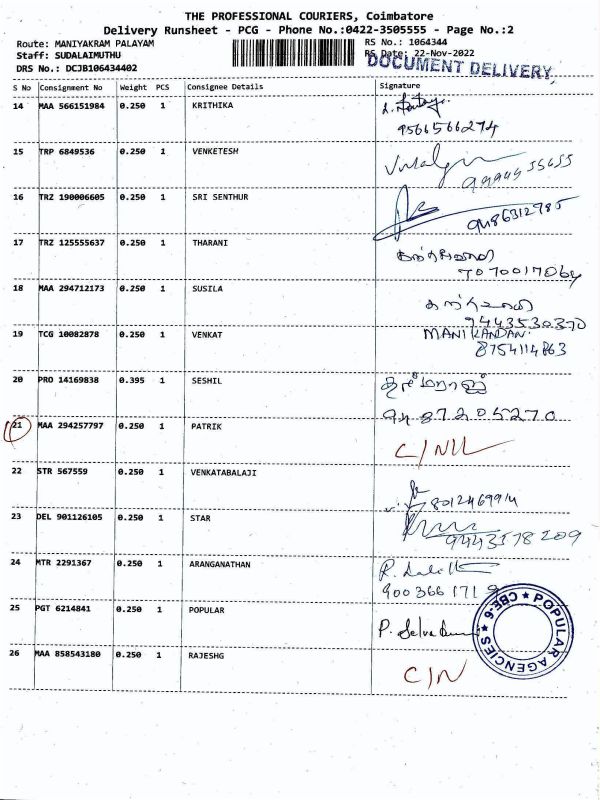 THE PROFESSIONAL COURIERS, Coimbatore
Delivery Runsheet - PCG - Phone No.:0422-3505555 - Page No.:2
Route: MANIYAKRAM PALAYAM RS No.: 1064344
Staff: SUDALAIMUTHU RS Date: 22-Nov-2022
DRS No.: DCJB106434402 DOCUMENT DELIVERY
S No Consignment No Weight PCS Consignee Details Signature
14 MAA 566151984 0.250 1 KRITHIKA
9566566274
15 TRP 6849536 0.250 1 VENKETESH
9994455655
16 TRZ 190006605 0.250 1 SRI SENTHUR
9486312785
17 TRZ 125555637 0.250 1 THARANI
7070017064
18 MAA 294712173 0.250 1 SUSILA
9443530370
19 TCG 10082878 0.250 1 VENKAT MANIKANDAN
8754114863
20 PRO 14169838 0.395 1 SESHIL தர்மராஜ்
9487205270
21 MAA 294257797 0.250 1 PATRIK C/NIL
22 STR 567559 0.250 1 VENKATABALAJI
8012469914
23 DEL 901126105 0.250 1 STAR
9443178209
24 MTR 2291367 0.250 1 ARANGANATHAN
9003661719
25 PGT 6214841 0.250 1 POPULAR P. Selva
POPULAR AGENCIES ★ CBE-6 ★
26 MAA 858543180 0.250 1 RAJESHG C/N